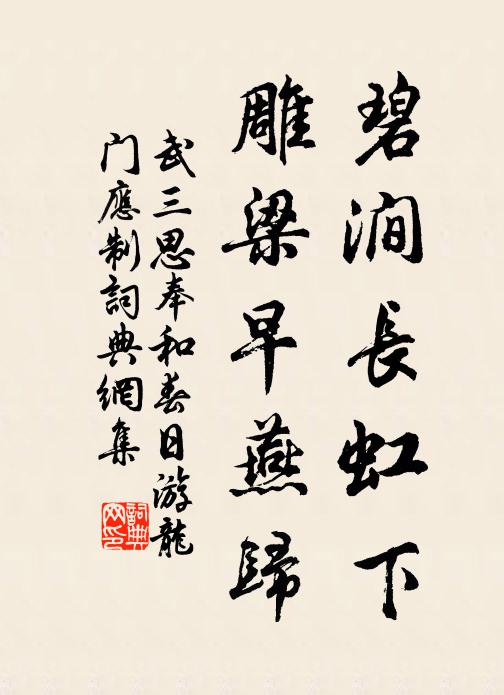 碧澗長虹下
雕梁早燕歸
武三思奉和春日游龍
门應制詞典網集
詞典
网印